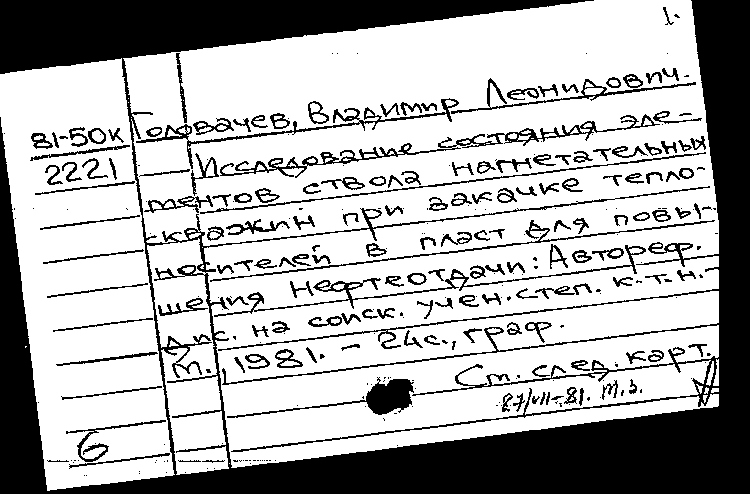 1.
81-50К Головачев, Владимир Леонидович.
2221 Исследование состояния эле-
ментов ствола нагнетательных
скважин при закачке тепло-
носителей в пласт для повы-
шения нефтеотдачи: Автореф.
дис. на соиск. учен. степ. к.т.н.-
М., 1981. - 24с., граф.
См. след. карт.
87/VII-81. М.З.
6